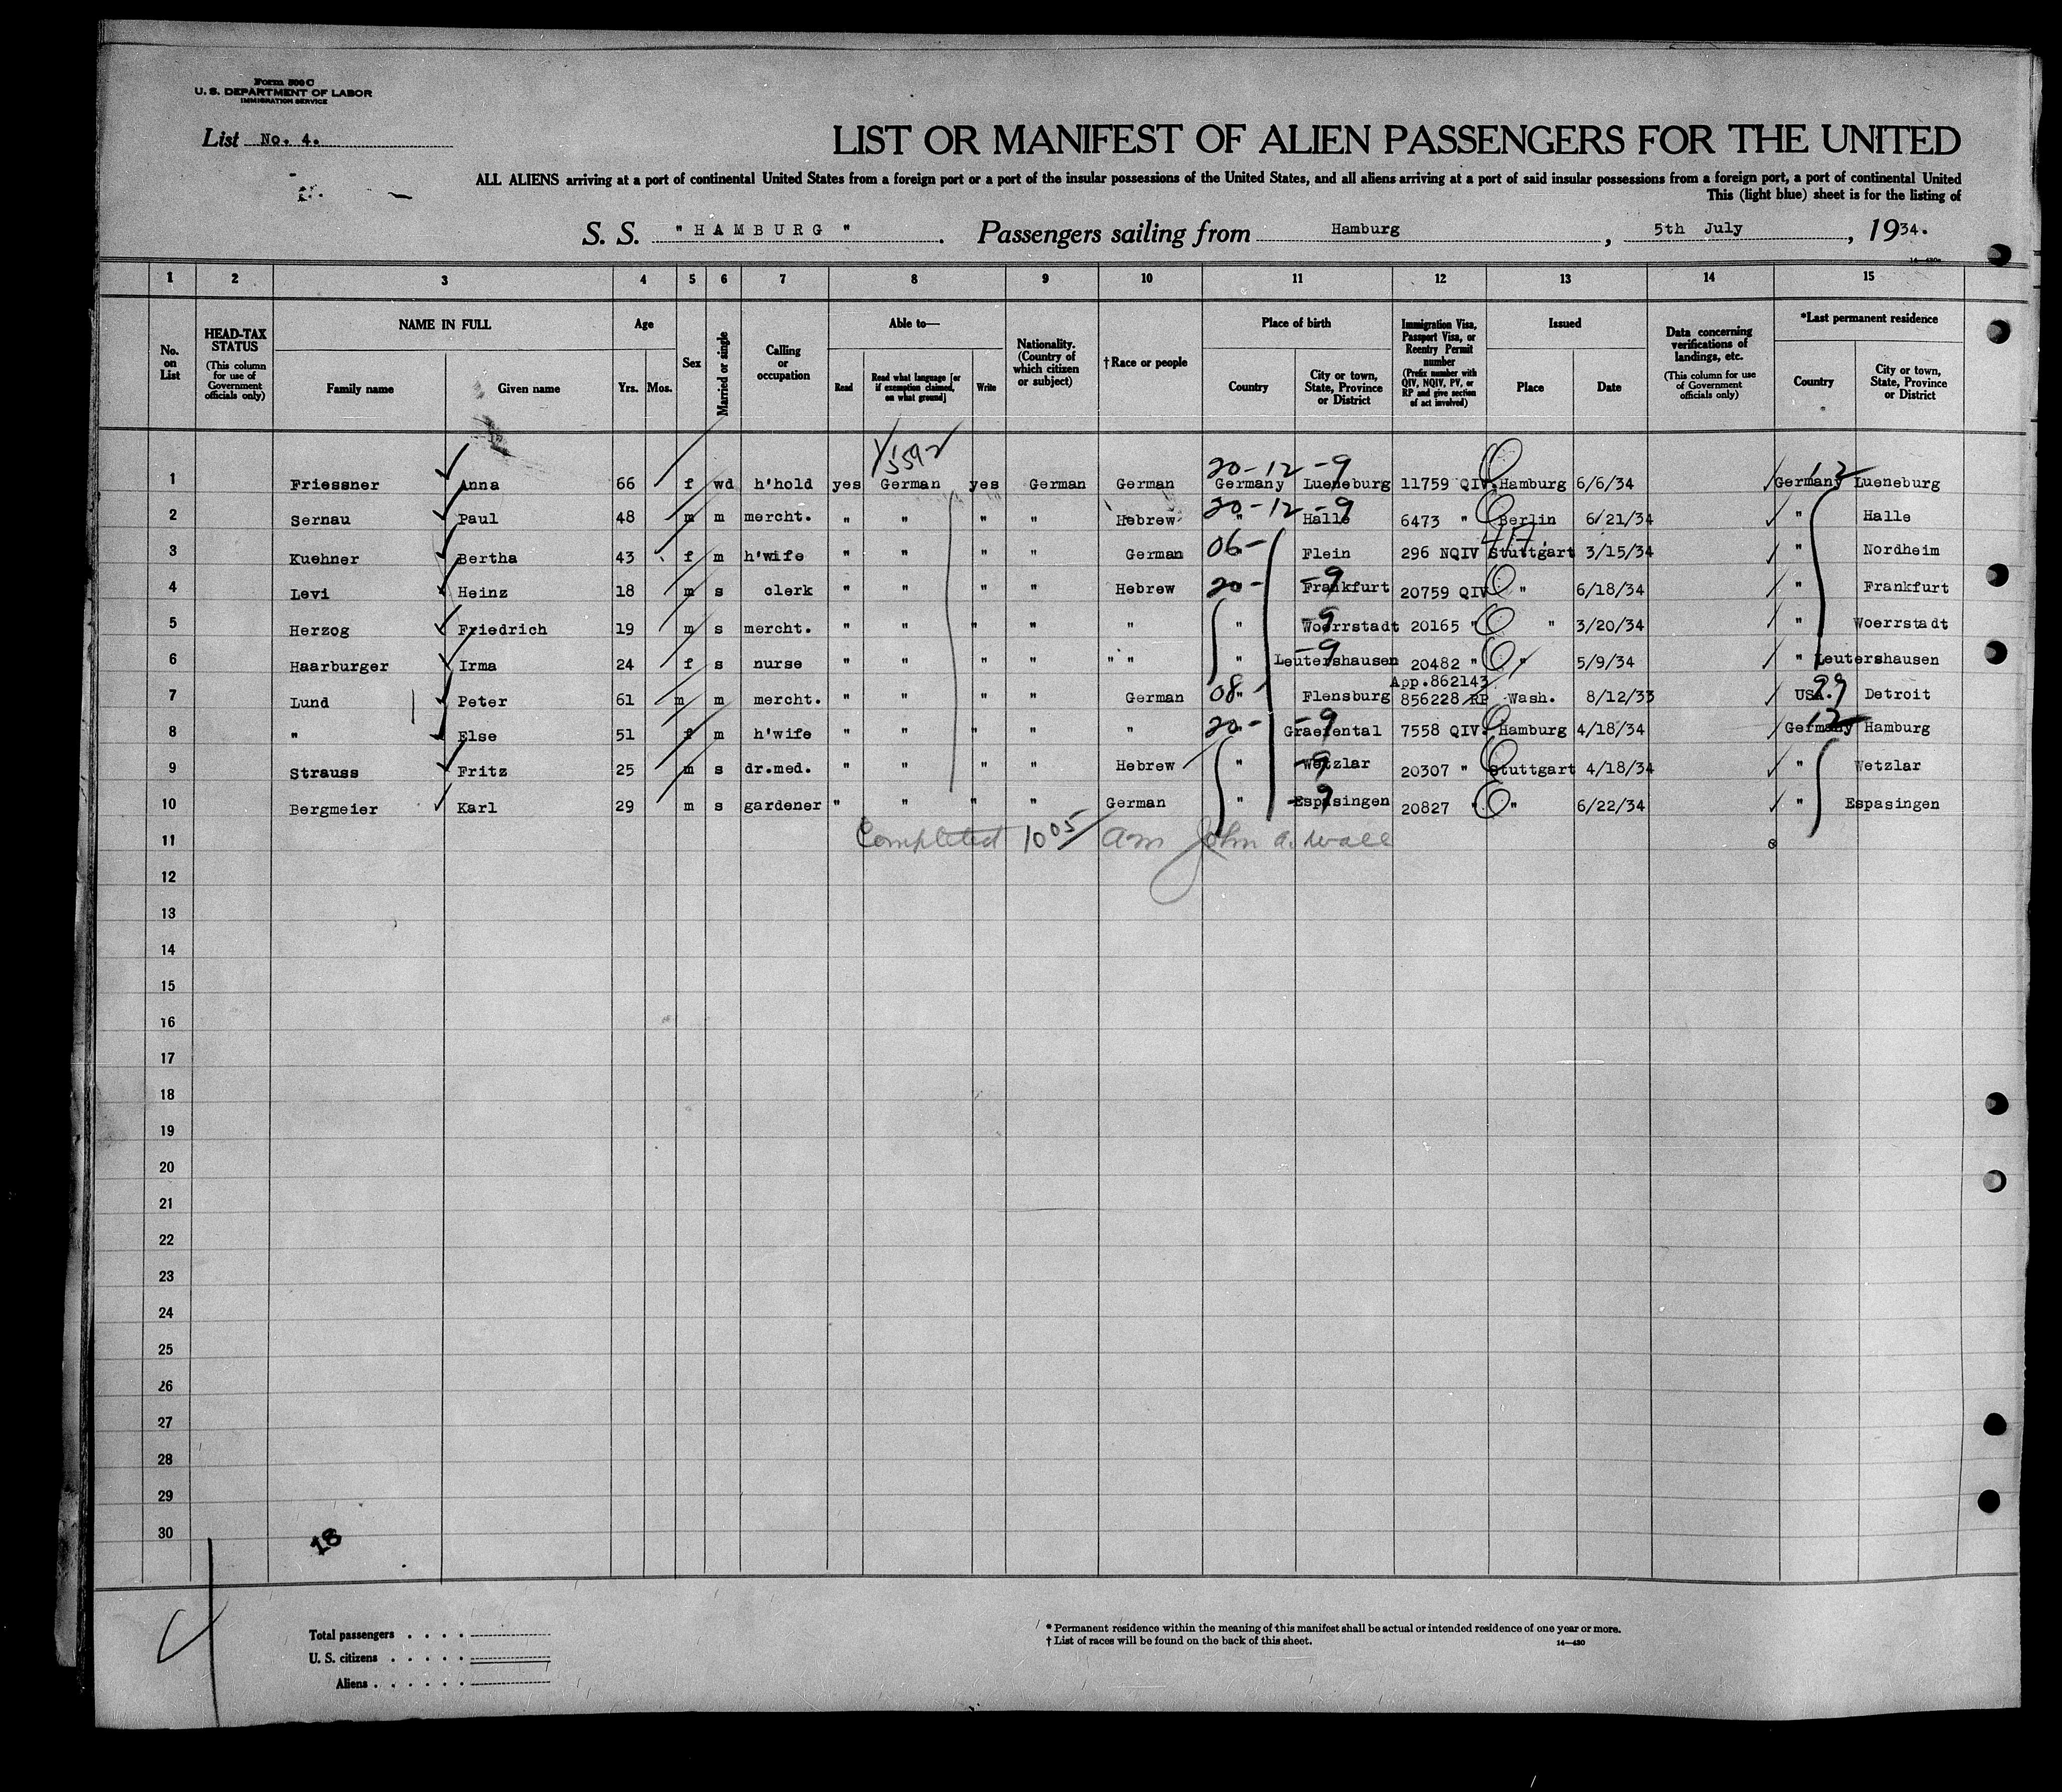 Form 500 C
U. S. DEPARTMENT OF LABOR
IMMIGRATION SERVICE
List No. 4.
LIST OR MANIFEST OF ALIEN PASSENGERS FOR THE UNITED
ALL ALIENS arriving at a port of continental United States from a foreign port or a port of the insular possessions of the United States, and all aliens arriving at a port of said insular possessions from a foreign port, a port of continental United
This (light blue) sheet is for the listing of
S. S. " HAMBURG " . Passengers sailing from Hamburg , 5th July , 1934.
1 2 3 4 5 6 7 8 9 10 11 12 13 14 15
No. on List
HEAD-TAX STATUS (This column for use of Government officials only)
NAME IN FULL
Family name Given name
Age
Yrs. Mos.
Sex
Married or single
Calling or occupation
Able to—
Read Read what language [or if exemption claimed, on what ground] Write
Nationality. (Country of which citizen or subject)
†Race or people
Place of birth
Country City or town, State, Province or District
Immigration Visa, Passport Visa, or Reentry Permit number (Prefix number with QIV, NQIV, PV, or RP and give section of act involved)
Issued
Place Date
Data concerning verifications of landings, etc. (This column for use of Government officials only)
*Last permanent residence
Country City or town, State, Province or District
20-12-9 12
1 Friessner Anna 66 f wd h'hold yes German yes German German Germany Lueneburg 11759 QIV. Hamburg 6/6/34 Germany Lueneburg
20-12-9
2 Sernau Paul 48 m m mercht. " " " " Hebrew " Halle 6473 " Berlin 6/21/34 " Halle
06-
3 Kuehner Bertha 43 f m h'wife " " " " German " Flein 296 NQIV Stuttgart 3/15/34 " Nordheim
20- -9
4 Levi Heinz 18 m s clerk " " " " Hebrew " Frankfurt 20759 QIV " 6/18/34 " Frankfurt
-9
5 Herzog Friedrich 19 m s mercht. " " " " " " Woerrstadt 20165 " " 3/20/34 " Woerrstadt
-9
6 Haarburger Irma 24 f s nurse " " " " " " " Leutershausen 20482 " " 5/9/34 " Leutershausen
08- App.862143 99
7 Lund Peter 61 m m mercht. " " " " German " Flensburg 856228 RP Wash. 8/12/33 USA. Detroit
20- -9 12
8 " Else 51 f m h'wife " " " " " Graefental 7558 QIV. Hamburg 4/18/34 Germany Hamburg
-9
9 Strauss Fritz 25 m s dr.med. " " " " Hebrew " Wetzlar 20307 " Stuttgart 4/18/34 " Wetzlar
-9
10 Bergmeier Karl 29 m s gardener " " " " German " Espasingen 20827 " " 6/22/34 " Espasingen
11 Completed 10 05 am John A. Wall
12
13
14
15
16
17
18
19
20
21
22
23
24
25
26
27
28
29
30
18
Total passengers . . . .
U. S. citizens . . . . .
Aliens . . . . . .
* Permanent residence within the meaning of this manifest shall be actual or intended residence of one year or more.
† List of races will be found on the back of this sheet. 14—430